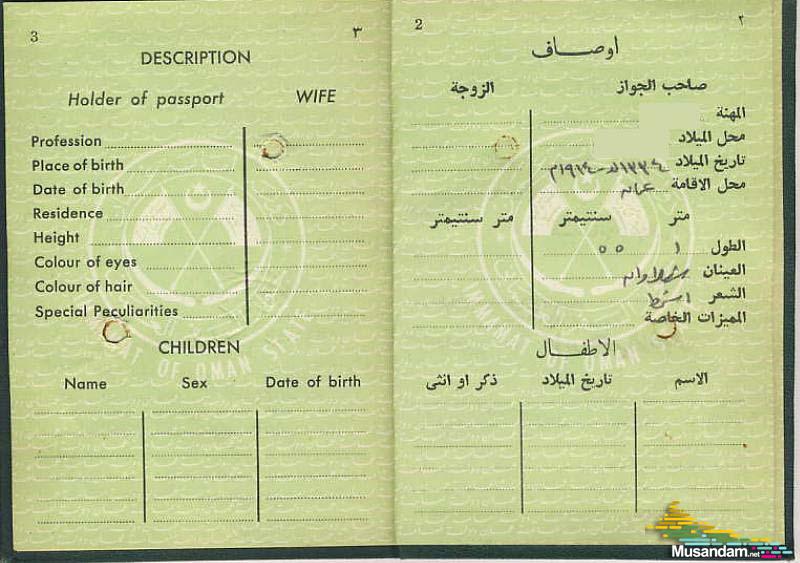 3 ٣
DESCRIPTION
Holder of passport WIFE
Profession
Place of birth
Date of birth
Residence
Height
Colour of eyes
Colour of hair
Special Peculiarities
IMAMATE OF OMAN STATE
CHILDREN
Name Sex Date of birth
2 ٢
اوصاف
صاحب الجواز الزوجة
المهنة
محل الميلاد
تاريخ الميلاد ١٣٣٤هـ - ١٩١٤م
محل الاقامة عمان
متر سنتيمتر متر سنتيمتر
الطول ١ ٥٥
العينان
الشعر
المميزات الخاصة
الاطفال
الاسم تاريخ الميلاد ذكر او انثى
Musandam.net